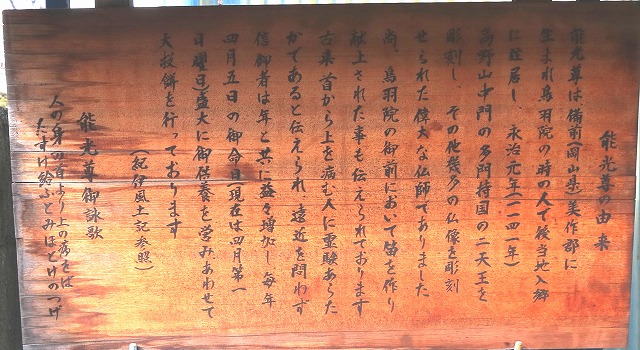 能光尊の由来
能光尊は備前(岡山県)美作郡に
生まれ鳥羽院の時の人で後当地入郷
に住居し 永治元年(一一四一年)
高野山中門の多門持国の二天王を
彫刻し、その他幾多の仏像を彫刻
せられた偉大な仏師でありました
尚、鳥羽院の御前において笛を作り
献上された事も伝えられております
古来首から上を病む人に霊験あらた
かであると伝えられ 遠近を問わず
信御者は年と共に益々増加し毎年
四月五日の御命日(現在は四月第一
日曜日)盛大に御供養を営みあわせて
大投餅を行っております
(紀伊風土記参照)
能光尊御詠歌
人の身の首より上の病をば
たすけ給ふとみほとけのつげ